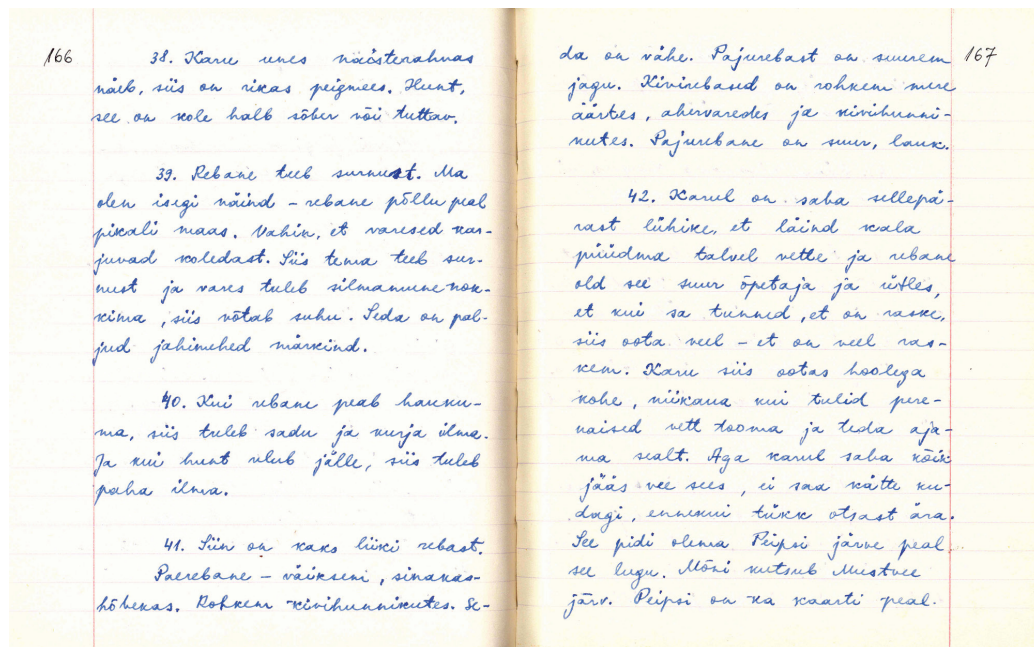 166
38. Karu unes naisterahvas
näeb, siis on rikas peigmees. Hunt,
see on kole halb sõber või tuttav.
39. Rebane teeb surnust. Ma
olen isegi näind – rebane põllu peal
pikali maas. Vahin, et varesed kar-
juvad koledast. Siis tema teeb sur-
nust ja vares tuleb silmamune nok-
kima, siis võtab suhu. Seda on pal-
jud jahimehed märkind.
40. Kui rebane peab hauku-
ma, siis tuleb sadu ja kurja ilma.
Ja kui hunt ulub jälle, siis tuleb
paha ilma.
41. Siin on kaks liiki rebast.
Paerebane – väiksem, sinakas-
hõbekas. Rohkem kivihunnikutes. Se-
167
da on vähe. Pajurebast on suurem
jagu. Kivirebased on rohkem mere
äärtes, ahervaredes ja kivihunni-
kutes. Pajurebane on suur, lauk.
42. Karul on saba sellepä-
rast lühike, et läind kala
püüdma talvel vette ja rebane
old see suur õpetaja ja ütles,
et kui sa tunned, et on raske,
siis oota veel – et on veel ras-
kem. Karu siis ootas hoolega
kohe, niikaua kui tulid pere-
naised vett tooma ja teda aja-
ma sealt. Aga karul saba kõik
jääs vee sees, ei saa kätte ku-
dagi, ennekui tükk otsast ära.
See pidi olema Peipsi järve peal
see lugu. Mõni kutsub Mustvee
järv. Peipsi on ka kaarti peal.